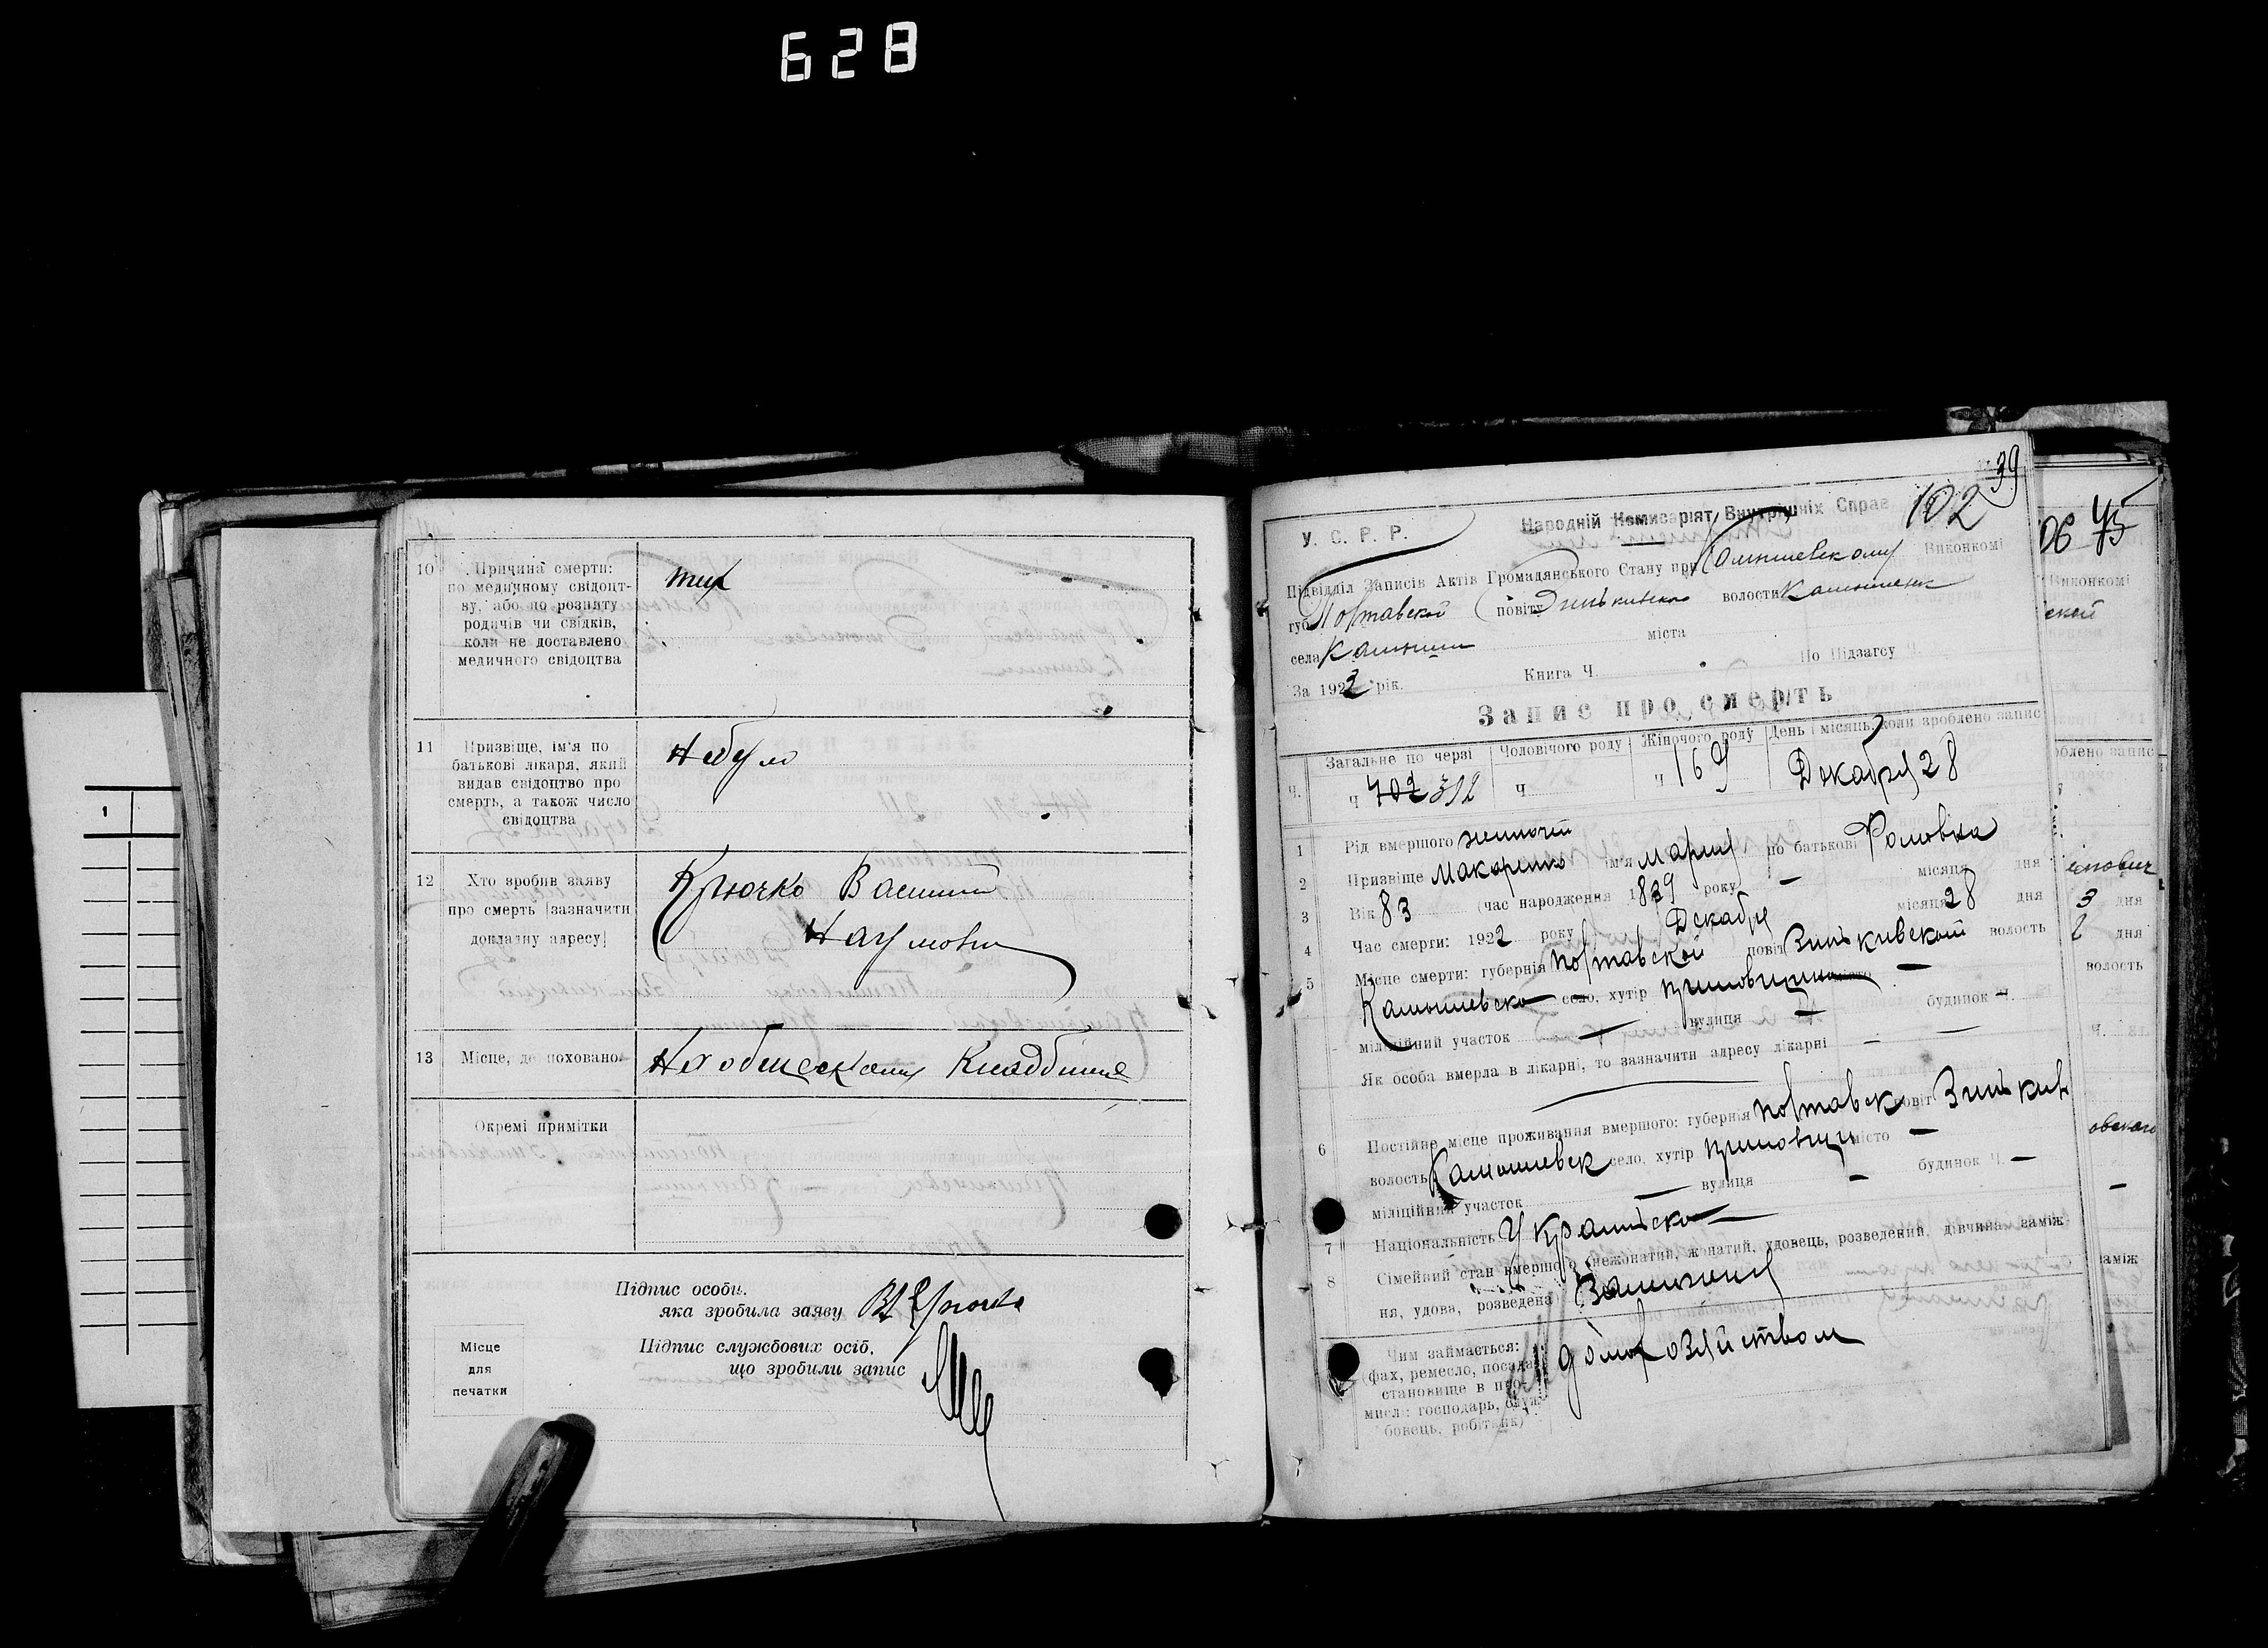 628
10 Причина смерти:
по медичному свідоцт-
ву, або по розпиту
родичів чи свідків,
коли не доставлено
медичного свідоцтва
тиф
11 Призвіще, ім'я по
батькові лікаря, який
видав свідоцтво про
смерть, а також число
свідоцтва
Небуло
12 Хто зробив заяву
про смерть (зазначити
докладну адресу)
Крючко Василий
Наумови
13 Місце, де поховано
На обществ Кладбище
Окремі примітки
Підпис особи,
яка зробила заяву
Підпис службових осіб,
що зробили запис
Місце
для
печатки
39
У. С. Р. Р. Народній Комисаріят Внутрішніх Справ 102
Підвідділ Записів Актів Громадянського Стану при Камышевскому Виконкомі
губ. Полтавской повіту Зиньковской волости Камышевск
села Камыши міста
За 1922 рік. Книга Ч. По Підзагсу Ч.
Запис про смерть
Загальне по черзі Чоловічого роду Жіночого роду День і місяць, коли зроблено запис
Ч. ч 702 392 ч ч 169 Декабря 28
1 Рід вмершого женский
2 Призвіще Макаренко ім'я Мария по батькові
3 Вік 83 (час народження 1839 року — місяця дня
4 Час смерти: 1922 року Декабре місяця 28 дня
5 Місце смерти: губернія Полтавской повіт Зиньківской волость
Камышевско село, хутір місто —
міліційний участок — вулиця — будинок Ч. —
Як особа вмерла в лікарні, то зазначити адресу лікарні — —
6 Постійне місце проживання вмершого: губернія Полтавск повіт Зиньків
волость Камышевск село, хутір місто —
міліційний участок — вулиця — будинок Ч. —
7 Національність Украинско
8 Сімейний стан вмершого (нежонатий, жонатий, удовець, розведений, дівчина, заміж-
ня, удова, розведена
Чим займається:
(фах, ремесло, посада,
становище в про-
мислі: господарь, служ-
бовець, робітник)
домохозяйством
106 45
Виконкомі
ской
облено запис
3 дня
2 дня
волость
Ч.
заміж